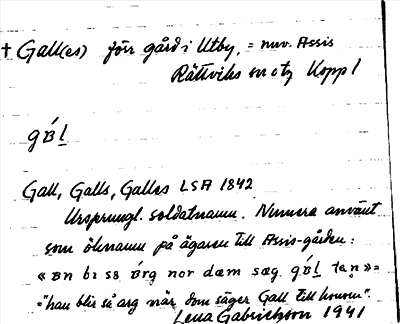 † Gall(es) förr gård i Utby, = nuv. Assis
Rättviks sn o tg Kopp l
gɞ́l̲
Gall, Galls, Galles LSA 1842
Ursprungl. soldatnamn. Numera använt
som öknamn på ägaren till Assis-gården:
«ɞn bɩ sɞ ɞrg nor dæm sæg. gɞ́l̲ 
="han blir så arg när dom säger Gall till honom".
Lena Gabrielsson 1941